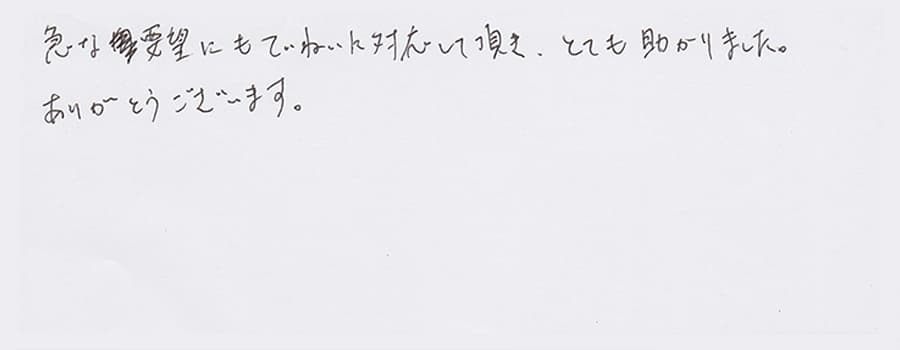 急な要望にもていねいに対応して頂き、とても助かりました。
ありがとうございます。